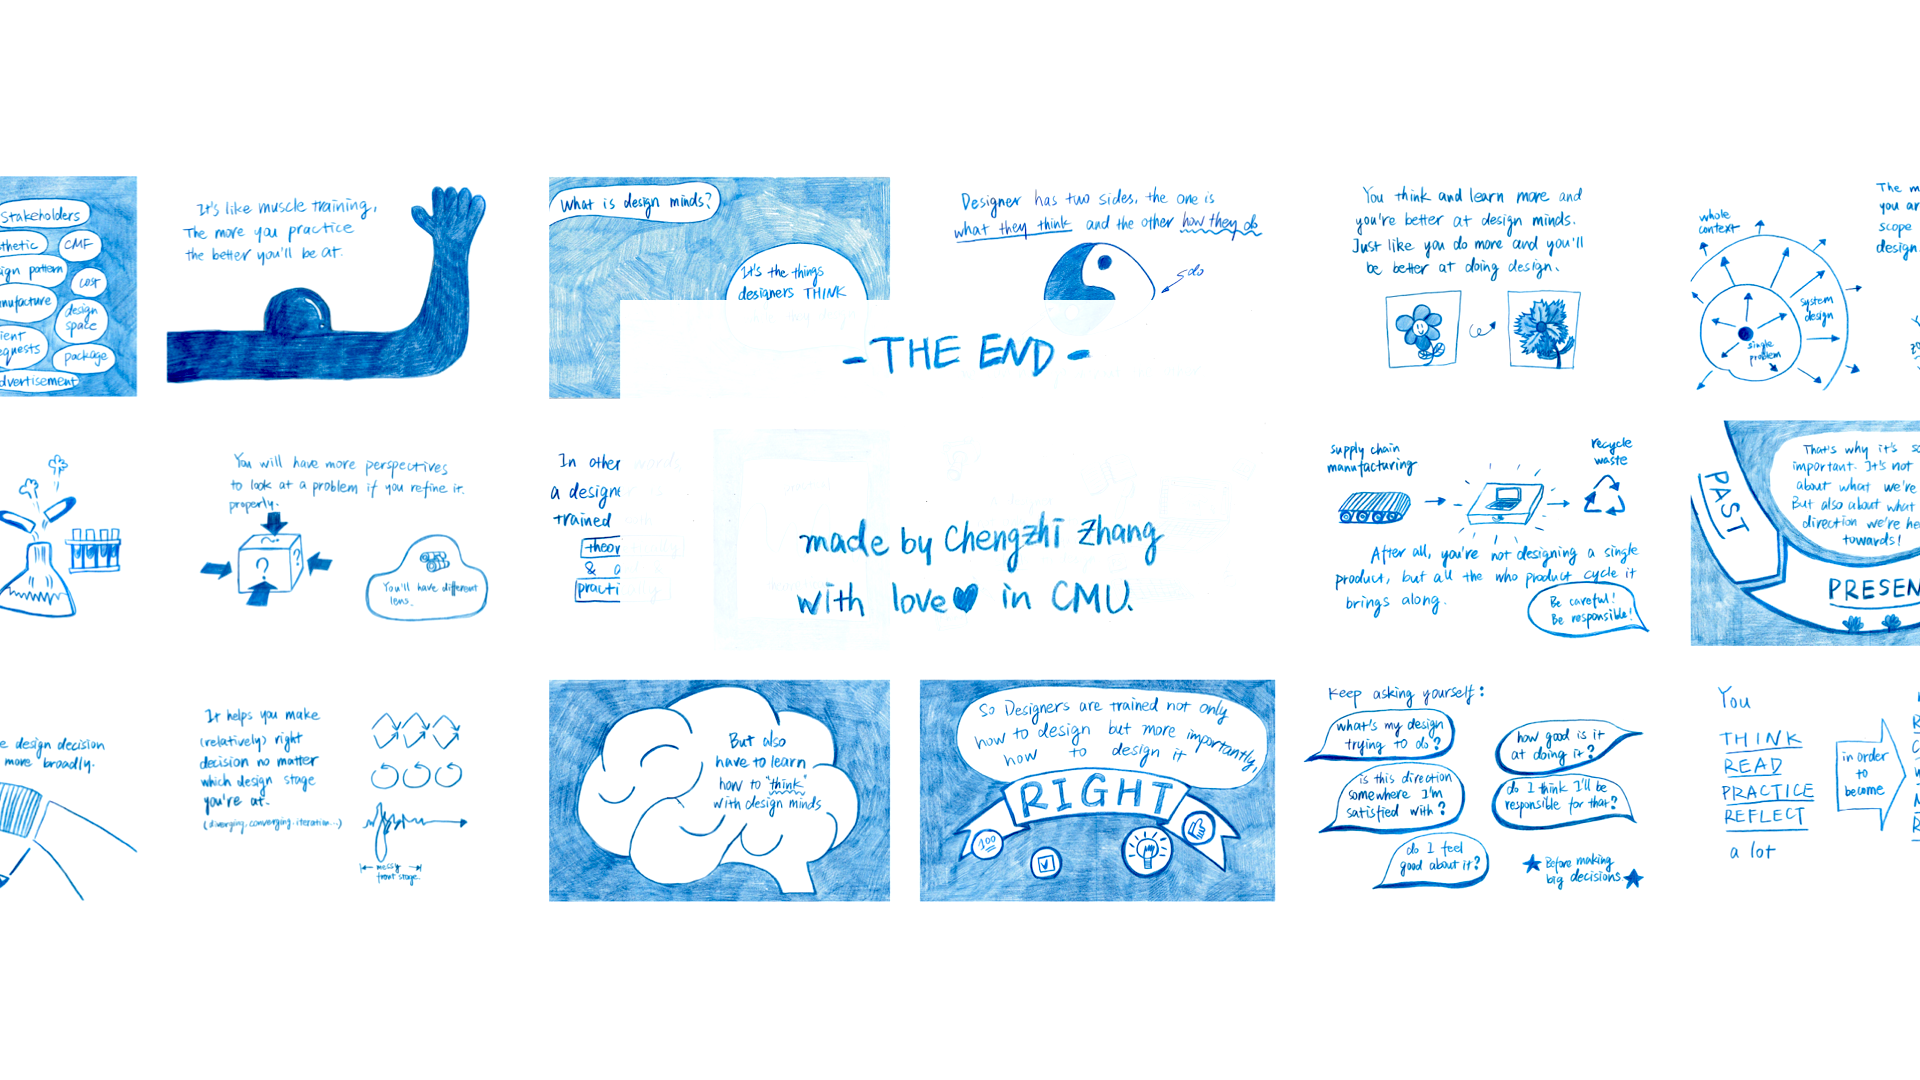 Stakeholders
CMF
pattern
cost
design
space
package
It's like muscle training,
The more you practice
the better you'll be at.
What is design minds?
It's the things
designers THINK
Designer has two sides, the one is
what they think and the other how they do
You think and learn more and
you're better at design minds.
Just like you do more and you'll
be better at doing design.
whole
context
system
design
single
problem
The
you
scope
design.
- THE END -
You will have more perspectives
to look at a problem if you refine it
properly.
?
?
You'll have different
lens.
In other
a
trained
&
made by Chengzhi Zhang
with love in CMU.
supply chain
manufacturing
recycle
waste
After all, you're not designing a single
product, but all the who product cycle it
brings along.
Be careful!
Be responsible!
PAST
That's why it's
important. It's not
about what we're
But also about what
direction we're
towards!
design decision
more broadly.
It helps you make
(relatively) right
decision no matter
which design stage
you're at.
(diverging, converging, iteration...)
messy
front stage
But also
have to learn
how to "think"
with design minds
So Designers are trained not only
how to design but more importantly,
how to design it
RIGHT
100
Keep asking yourself:
what's my design
trying to do?
how good is it
at doing it?
is this direction
somewhere I'm
satisfied with?
do I think I'll be
responsible for that?
do I feel
good about it?
Before making
big decisions
You
THINK
READ
PRACTICE
REFLECT
a lot
in order
to
become